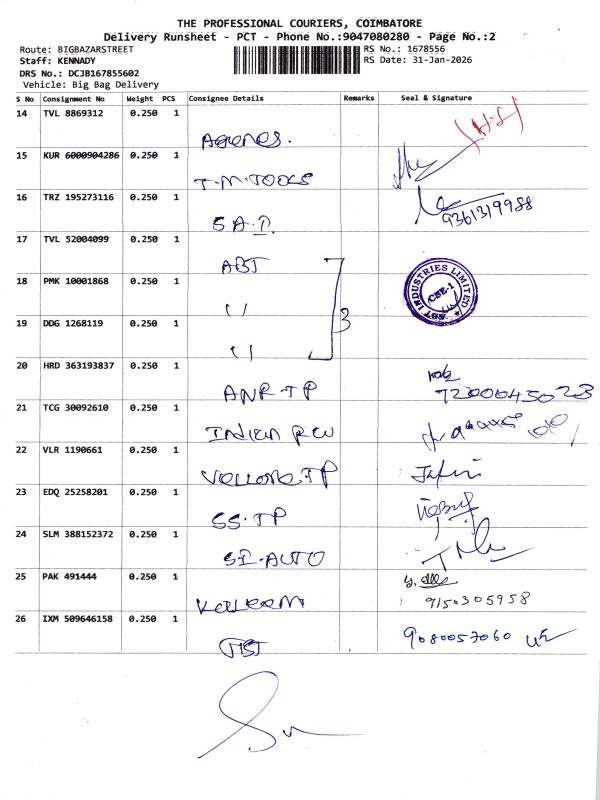 THE PROFESSIONAL COURIERS, COIMBATORE
Delivery Runsheet - PCT - Phone No.:9047080280 - Page No.:2
Route: BIGBAZARSTREET RS No.: 1678556
Staff: KENNADY RS Date: 31-Jan-2026
DRS No.: DCJB167855602
Vehicle: Big Bag Delivery
S No Consignment No Weight PCS Consignee Details Remarks Seal & Signature
14 TVL 8869312 0.250 1
15 KUR 6000904286 0.250 1
T-M-TOOLS
16 TRZ 195273116 0.250 1
9361319988
S A.I.
17 TVL 52004099 0.250 1
ABT
18 PMK 10001868 0.250 1
ABT INDUSTRIES LIMITED
CBE-1
''
3
19 DDG 1268119 0.250 1
''
20 HRD 363193837 0.250 1
ANR-TP
21 TCG 30092610 0.250 1
22 VLR 1190661 0.250 1
VELLORE.TP
23 EDQ 25258201 0.250 1
SS-TP
24 SLM 388152372 0.250 1
SI-AUTO
25 PAK 491444 0.250 1
9150305958
26 IXM 509646158 0.250 1
9080057060